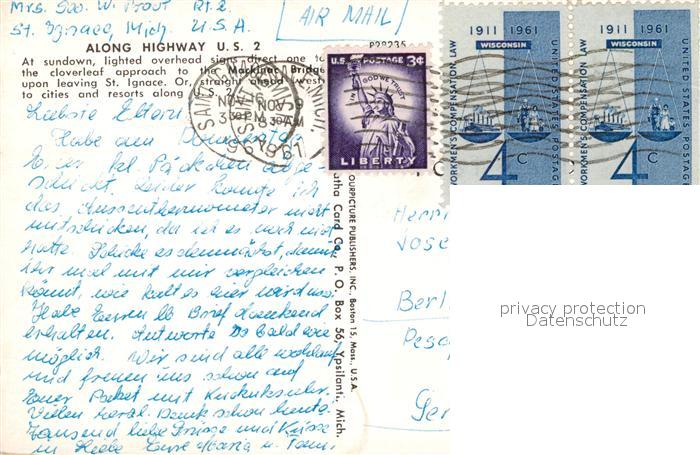 Mrs. Geo. W. Rt. 2
St. Ignace, Mich. U.S.A.
[AIR MAIL]
ALONG HIGHWAY U. S. 2
At sundown, lighted overhead signs direct one to
the cloverleaf approach to the Mackinac Bridge
upon leaving St. Ignace. Or, straight ahead (west)
to cities and resorts along
P28235
SAINT IGNACE MICH.
NOV 9
3 30 PM
NOV
8 30 AM
1961
U.S. POSTAGE 3¢
IN GOD WE TRUST
LIBERTY
1911 1961
WISCONSIN
WORKMEN'S COMPENSATION LAW
UNITED STATES POSTAGE
4 C
1911 1961
WISCONSIN
WORKMEN'S COMPENSATION LAW
UNITED STATES POSTAGE
4 C
Liebste Eltern!
Habe am Donnerstag
Euer kl. Päckchen abge-
schickt. Leider konnte ich
das Aussenthermometer nicht
mitschicken, da ich es noch nicht
hatte. Schicke es demnächst, damit
Ihr mal mit mir vergleichen
könnt, wie kalt es hier wird
Habe Euren lb Brief dankend
erhalten. Antworte so bald wie
möglich. Wir sind alle wohlauf
und freuen uns schon auf
Euer Paket mit Kuckucksuhr.
Vielen herzl. Dank schon heute.
Tausend liebe Grüsse und Küsse
in Liebe Eure Maria u. Fam.
OURPICTURE PUBLISHERS, INC., Boston 15, Mass., U.S.A.
Card Co., P. O. Box 56, Ypsilanti, Mich.
Herrn
Jose
Berl
Ger
privacy protection
Datenschutz